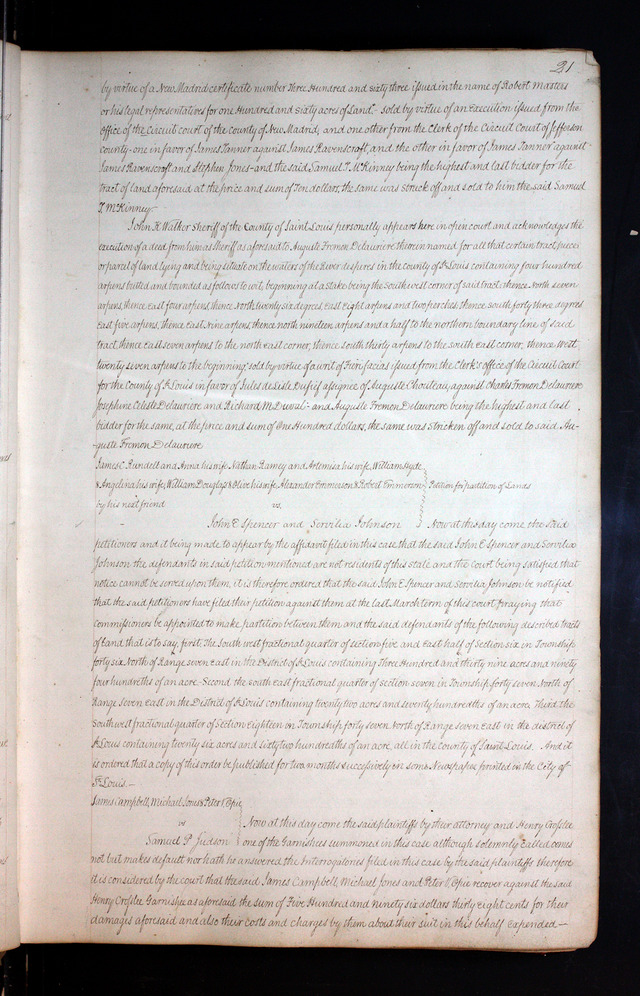 21
by virtue of a New Madrid certificate number Three Hundred and sixty three issued in the name of Robert Masters
or his legal representatives for one Hundred and sixty acres of Land - sold by virtue of an Execution issued from the
Office of the Circuit court of the County of New Madrid, and one other from the Clerk of the Circuit Court of Jefferson
county - one in favor of James Tanner against James Ravenscroft, and the other in favor of James Tanner against
James Ravenscroft and Stephen Jones - and the said Samuel T. McKinney being the highest and last bidder for the
tract of land aforesaid at the price and sum of Ten dollars, the same was struck off and sold to him the said Samuel
T. McKinney -
John K Walker Sheriff of the County of Saint Louis personally appears here in open court and acknowledges the
execution of a deed from him as Sheriff as aforesaid to Auguste Fremon Delauriere therein named for all that certain tract, piece
or parcel of land lying and being situate on the waters of the River desperes in the county of St Louis containing four hundred
arpens butted and bounded as follows to wit, beginning at a stake being the South west corner of said tract, thence North seven
arpens, thence east four arpens, thence North twenty six degrees, East eight arpens and two perches, thence South forty three degrees
East five arpens, thence East nine arpens, thence north nineteen arpens and a half to the northern boundary line of said
tract, thence East seven arpens to the north east corner, thence south thirty arpens to the south east corner, thence West
twenty seven arpens to the beginning, sold by virtue of a writ of Fieri facias issued from the Clerk's office of the Circuit Court
for the County of St Louis in favor of Jules de Lisle Dufief assignee of Auguste Chouteau, against Charles Fremon Delauriere
Josephine Celeste Delauriere and Richard M. Duval - and Auguste Fremon Delauriere being the highest and last
bidder for the same, at the price and sum of One Hundred dollars, the same was stricken off and sold to said Au-
-guste Fremon Delauriere
James C Rundell and Anna his wife Nathan Ramey and Artemisa his wife, William Hyde
& Angelina his wife, William Douglass & Olive his wife Alexander Emmerson & Robert Emmerson Petition for partition of Lands
by his next friend vs.
John E Spencer and Servilia Johnson Now at this day come the said
petitioners and it being made to appear by the affidavit filed in this case that the said John E Spencer and Servilia
Johnson the defendants in said petition mentioned are not residents of this state and the Court being satisfied that
notice cannot be served upon them, it is therefore ordered that the said John E Spencer and Servilia Johnson be notified
that the said petitioners have filed their petition against them at the last March term of this court praying that
commissioners be appointed to make partition between them and the said defendants of the following described tracts
of Land that is to say, first, The South west fractional quarter of section five and East half of Section six in Township
forty six North of Range seven east in the District of St Louis containing Three Hundred and thirty nine acres and ninety
four hundreths of an acre - Second the South east fractional quarter of section seven in Township forty seven North of
Range seven east in the District of St Louis containing twenty two acres and seventy hundredths of an acre, Third the
Southwest fractional quarter of Section Eighteen in Township forty seven North of Range seven east in the district of
St Louis containing twenty six acres and sixty two hundredths of an acre, all in the County of Saint Louis. And it
is ordered that a copy of this order be published for two months successively in some Newspaper printed in the City of
St. Louis. -
James Campbell, Michael Jones & Peter E Opie
vs Now at this day come the said plaintiffs by their attorney and Henry Crosslee
Samuel P. Judson one of the Garnishees summoned in this case although solemnly called comes
not but makes default nor hath he answered the Interrogatories filed in this case by the said plaintiffs therefore
it is considered by the court that the said James Campbell, Michael Jones and Peter E Opie recover against the said
Henry Crosslee Garnishee as aforesaid the sum of Five Hundred and ninety six dollars thirty eight cents for their
damages aforesaid and also their costs and charges by them about their suit in this behalf expended -